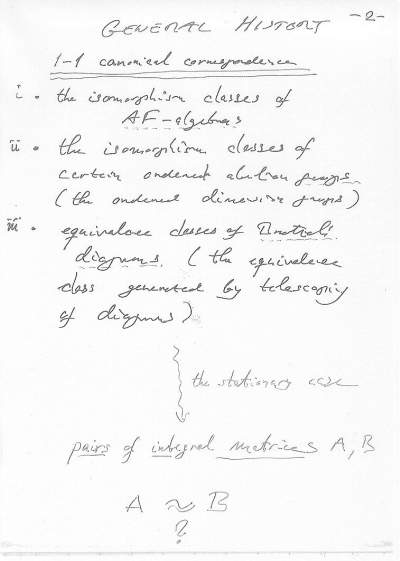 GENERAL HISTORY -2-
1-1 canonical correspondence
i • the isomorphism classes of
AF-algebras
ii • the isomorphism classes of
certain ordered abelian groups
(the ordered dimension groups)
iii • equivalence classes of Bratteli
diagrams (the equivalence
class generated by telescoping
of diagrams)
the stationary case
pairs of integral matrices A, B
A ≈ B
?